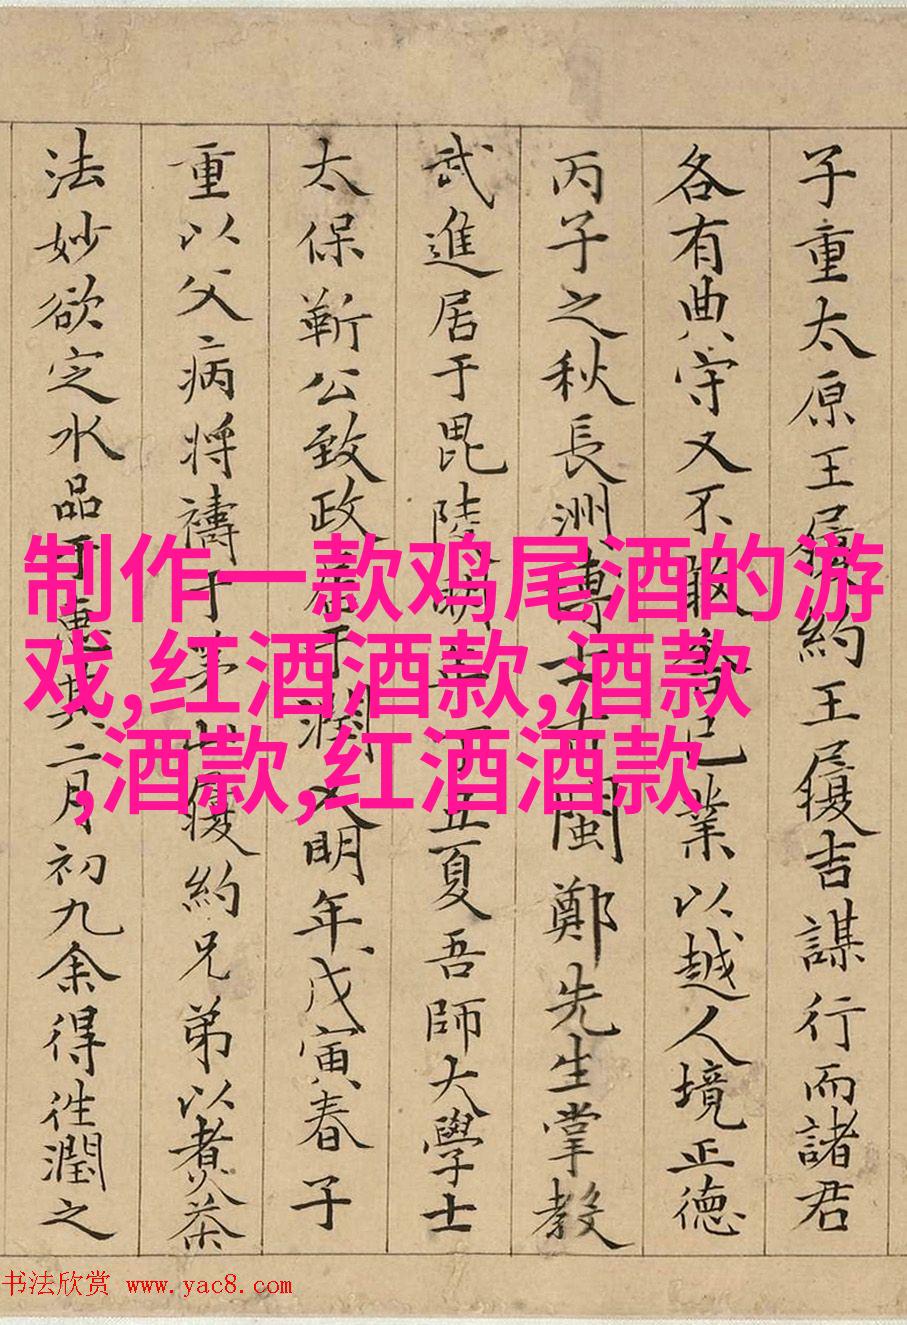 子重太原王履約王履吉謀行而諸君
各有典守又不敢舍己業以越人境正德
丙子之秋長洲博士古閩鄭先生掌教
武進居于毘陵明年丁丑夏吾師大學士
太保靳公致政居于潤又明年戊寅春子
重以父病将禱于茅山履約兄弟以煮茶
法妙欲定水品于惠共二月初九余得往潤之
制作一款鸡尾酒的游
戏,红酒酒款,酒款
,酒款,红酒酒款
书法欣赏 www.yac8.com